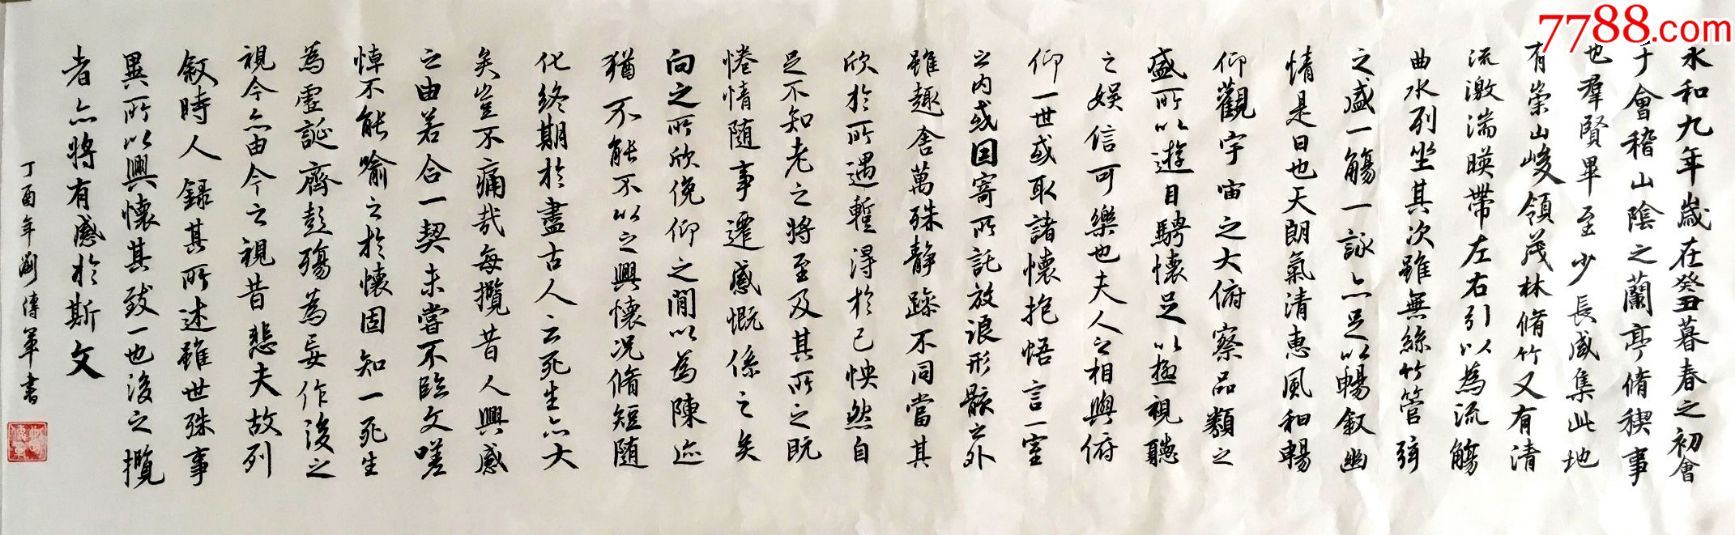 7788.com
永和九年歲在癸丑暮春之初會
于會稽山陰之蘭亭脩稧事
也羣賢畢至少長咸集此地
有崇山峻領茂林脩竹又有清
流激湍暎帶左右引以為流觴
曲水列坐其次雖無絲竹管弦
之盛一觴一詠亦足以暢叙幽
情是日也天朗氣清惠風和暢
仰觀宇宙之大俯察品類之
盛所以遊目騁懷足以極視聽
之娛信可樂也夫人之相與俯
仰一世或取諸懷抱悟言一室
之內或因寄所託放浪形骸之外
雖趣舍萬殊静躁不同當其
欣於所遇暫得於己怏然自
足不知老之將至及其所之既
惓情随事遷感慨係之矣
向之所欣俛仰之閒以為陳迹
猶不能不以之興懷况脩短随
化終期於盡古人云死生亦大
矣豈不痛哉每攬昔人興感
之由若合一契未嘗不臨文嗟
悼不能喻之於懷固知一死生
為虛誕齊彭殤為妄作後之
視今亦由今之視昔悲夫故列
叙時人録其所述雖世殊事
異所以興懷其致一也後之攬
者亦將有感於斯文
丁酉年劉傳軍書